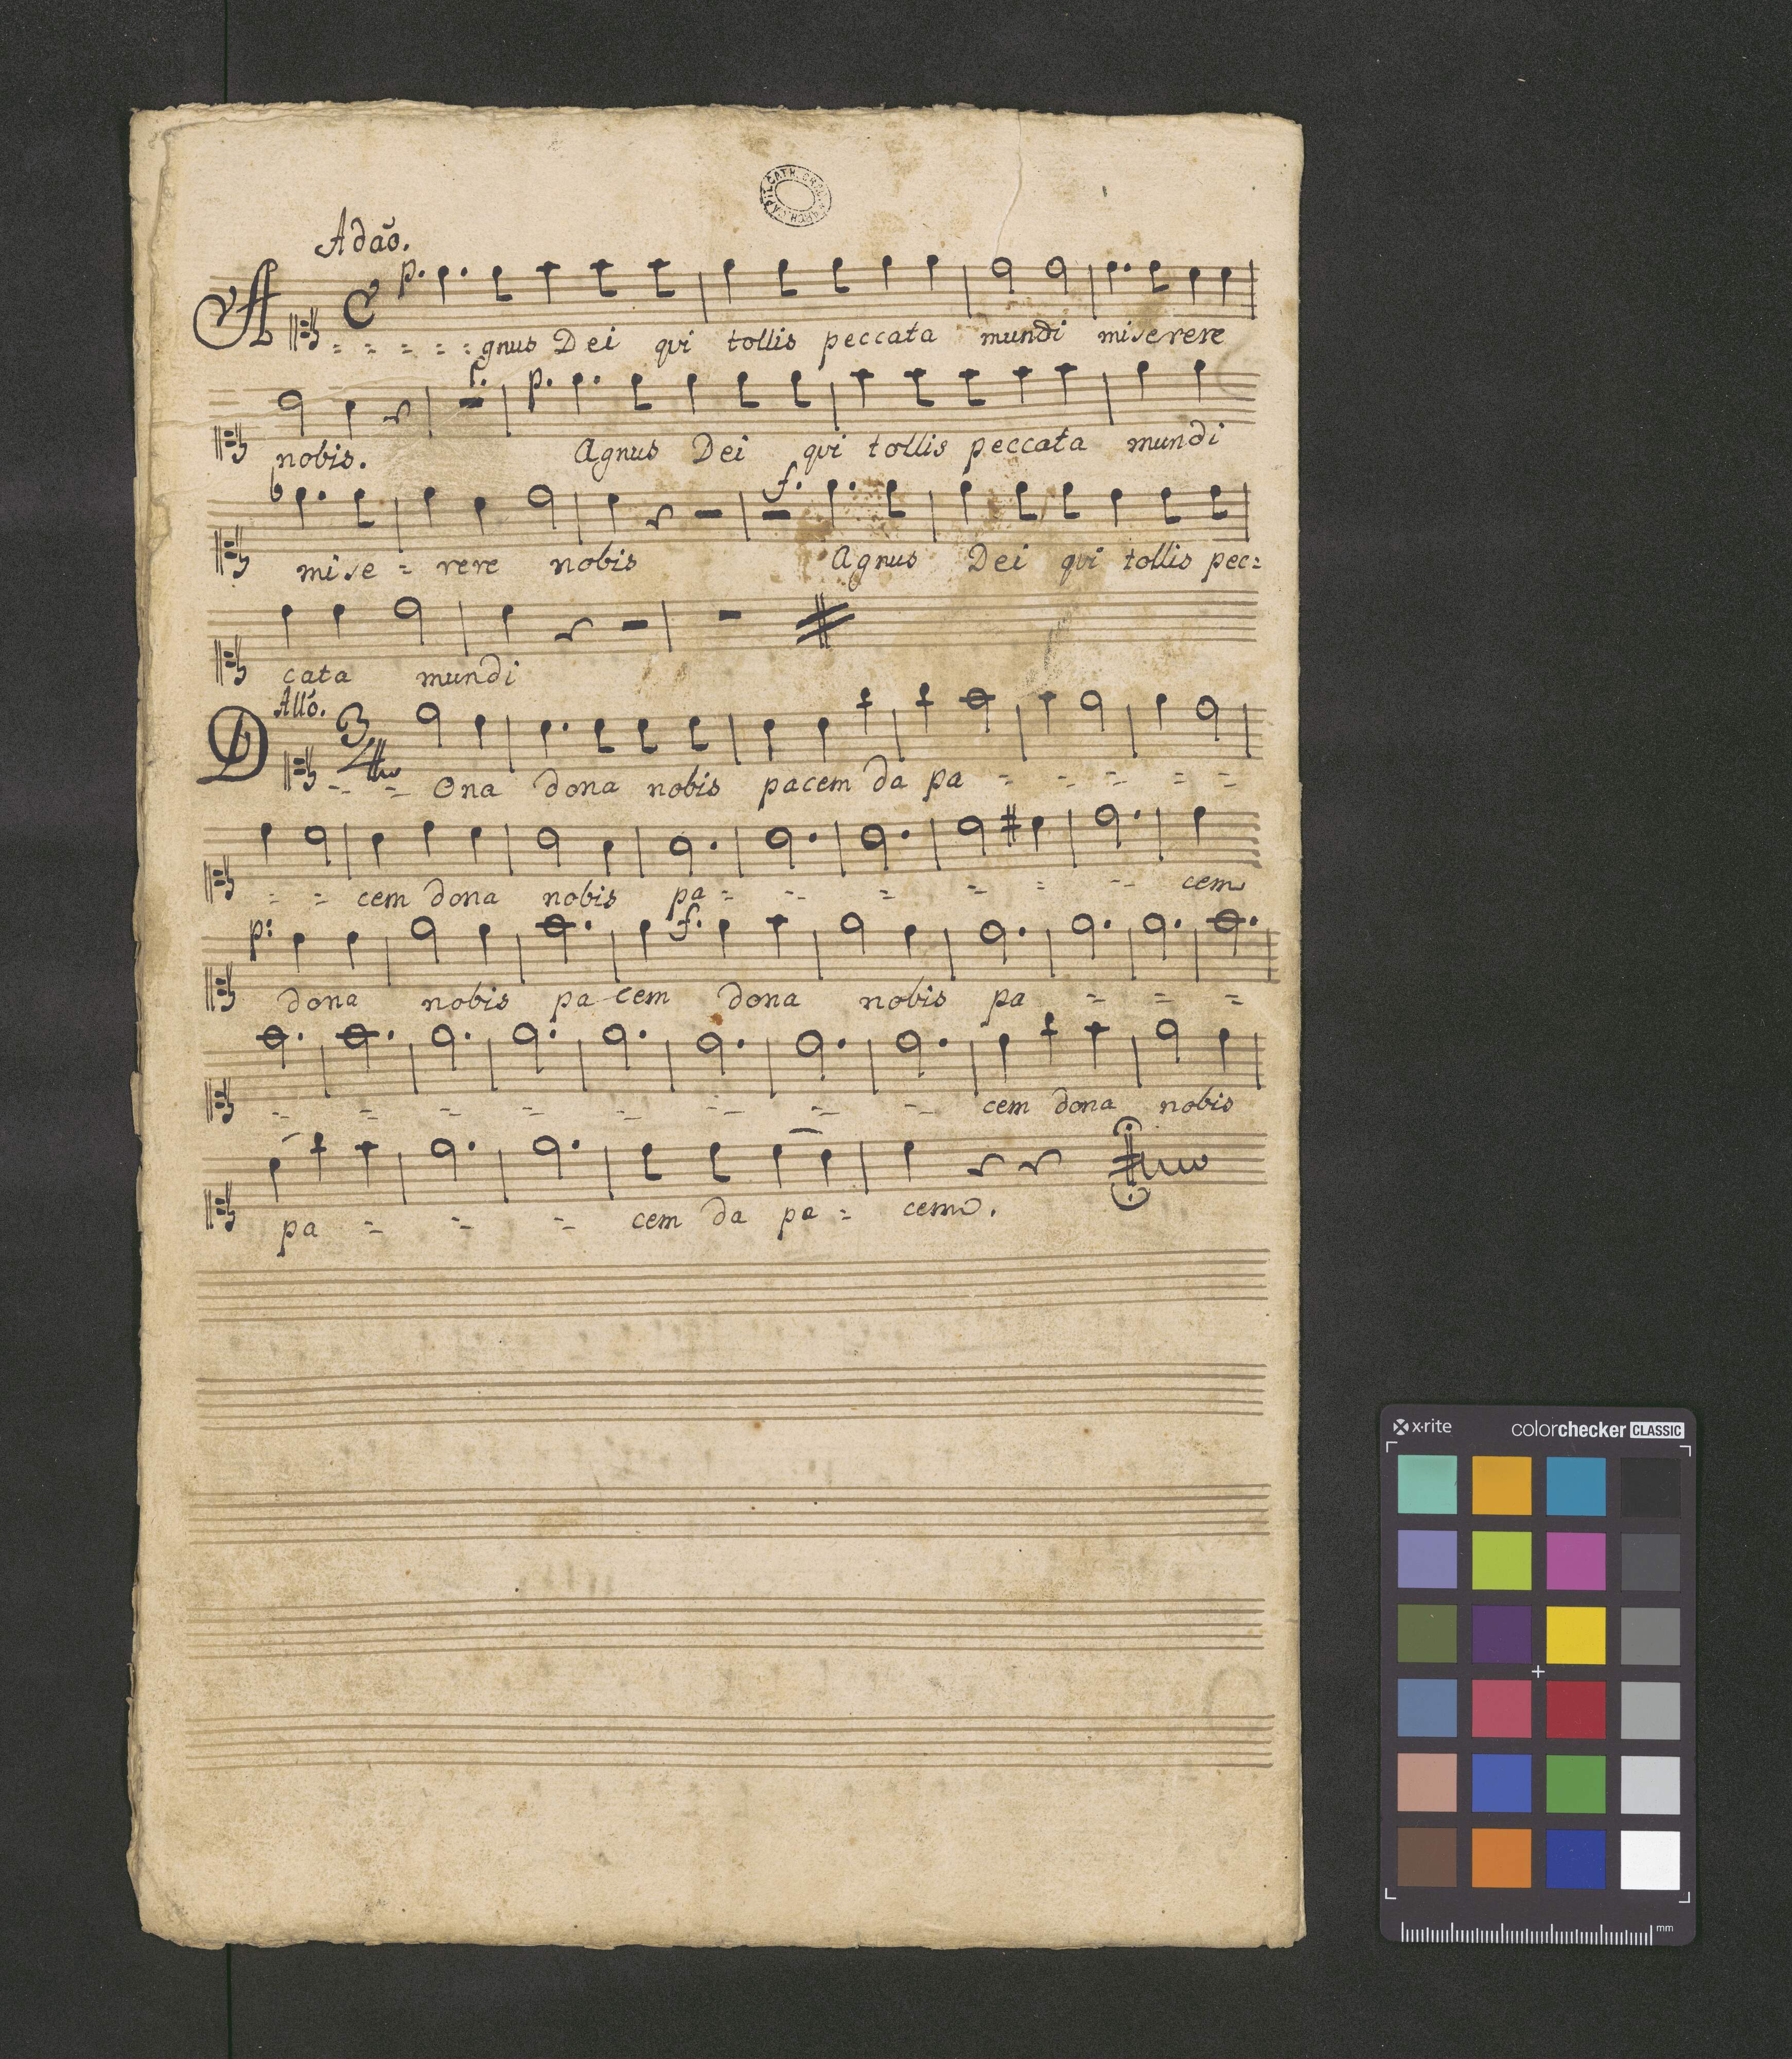 Adaõ.
p.
A = = = = = gnus Dei qui tollis peccata mundi miserere
f. p.
nobis. Agnus Dei qui tollis peccata mundi
f.
mise = rere nobis Agnus Dei qui tollis pec=
cata mundi
Allõ. 3/4
D = = Ona dona nobis pacem da pa = = = = =
= = cem dona nobis pa = = = = = = cem
p: f.
dona nobis pa cem dona nobis pa = = =
= = = = = = = = cem dona nobis
pa = = = cem da pa = cem.
x·rite colorchecker CLASSIC
mm